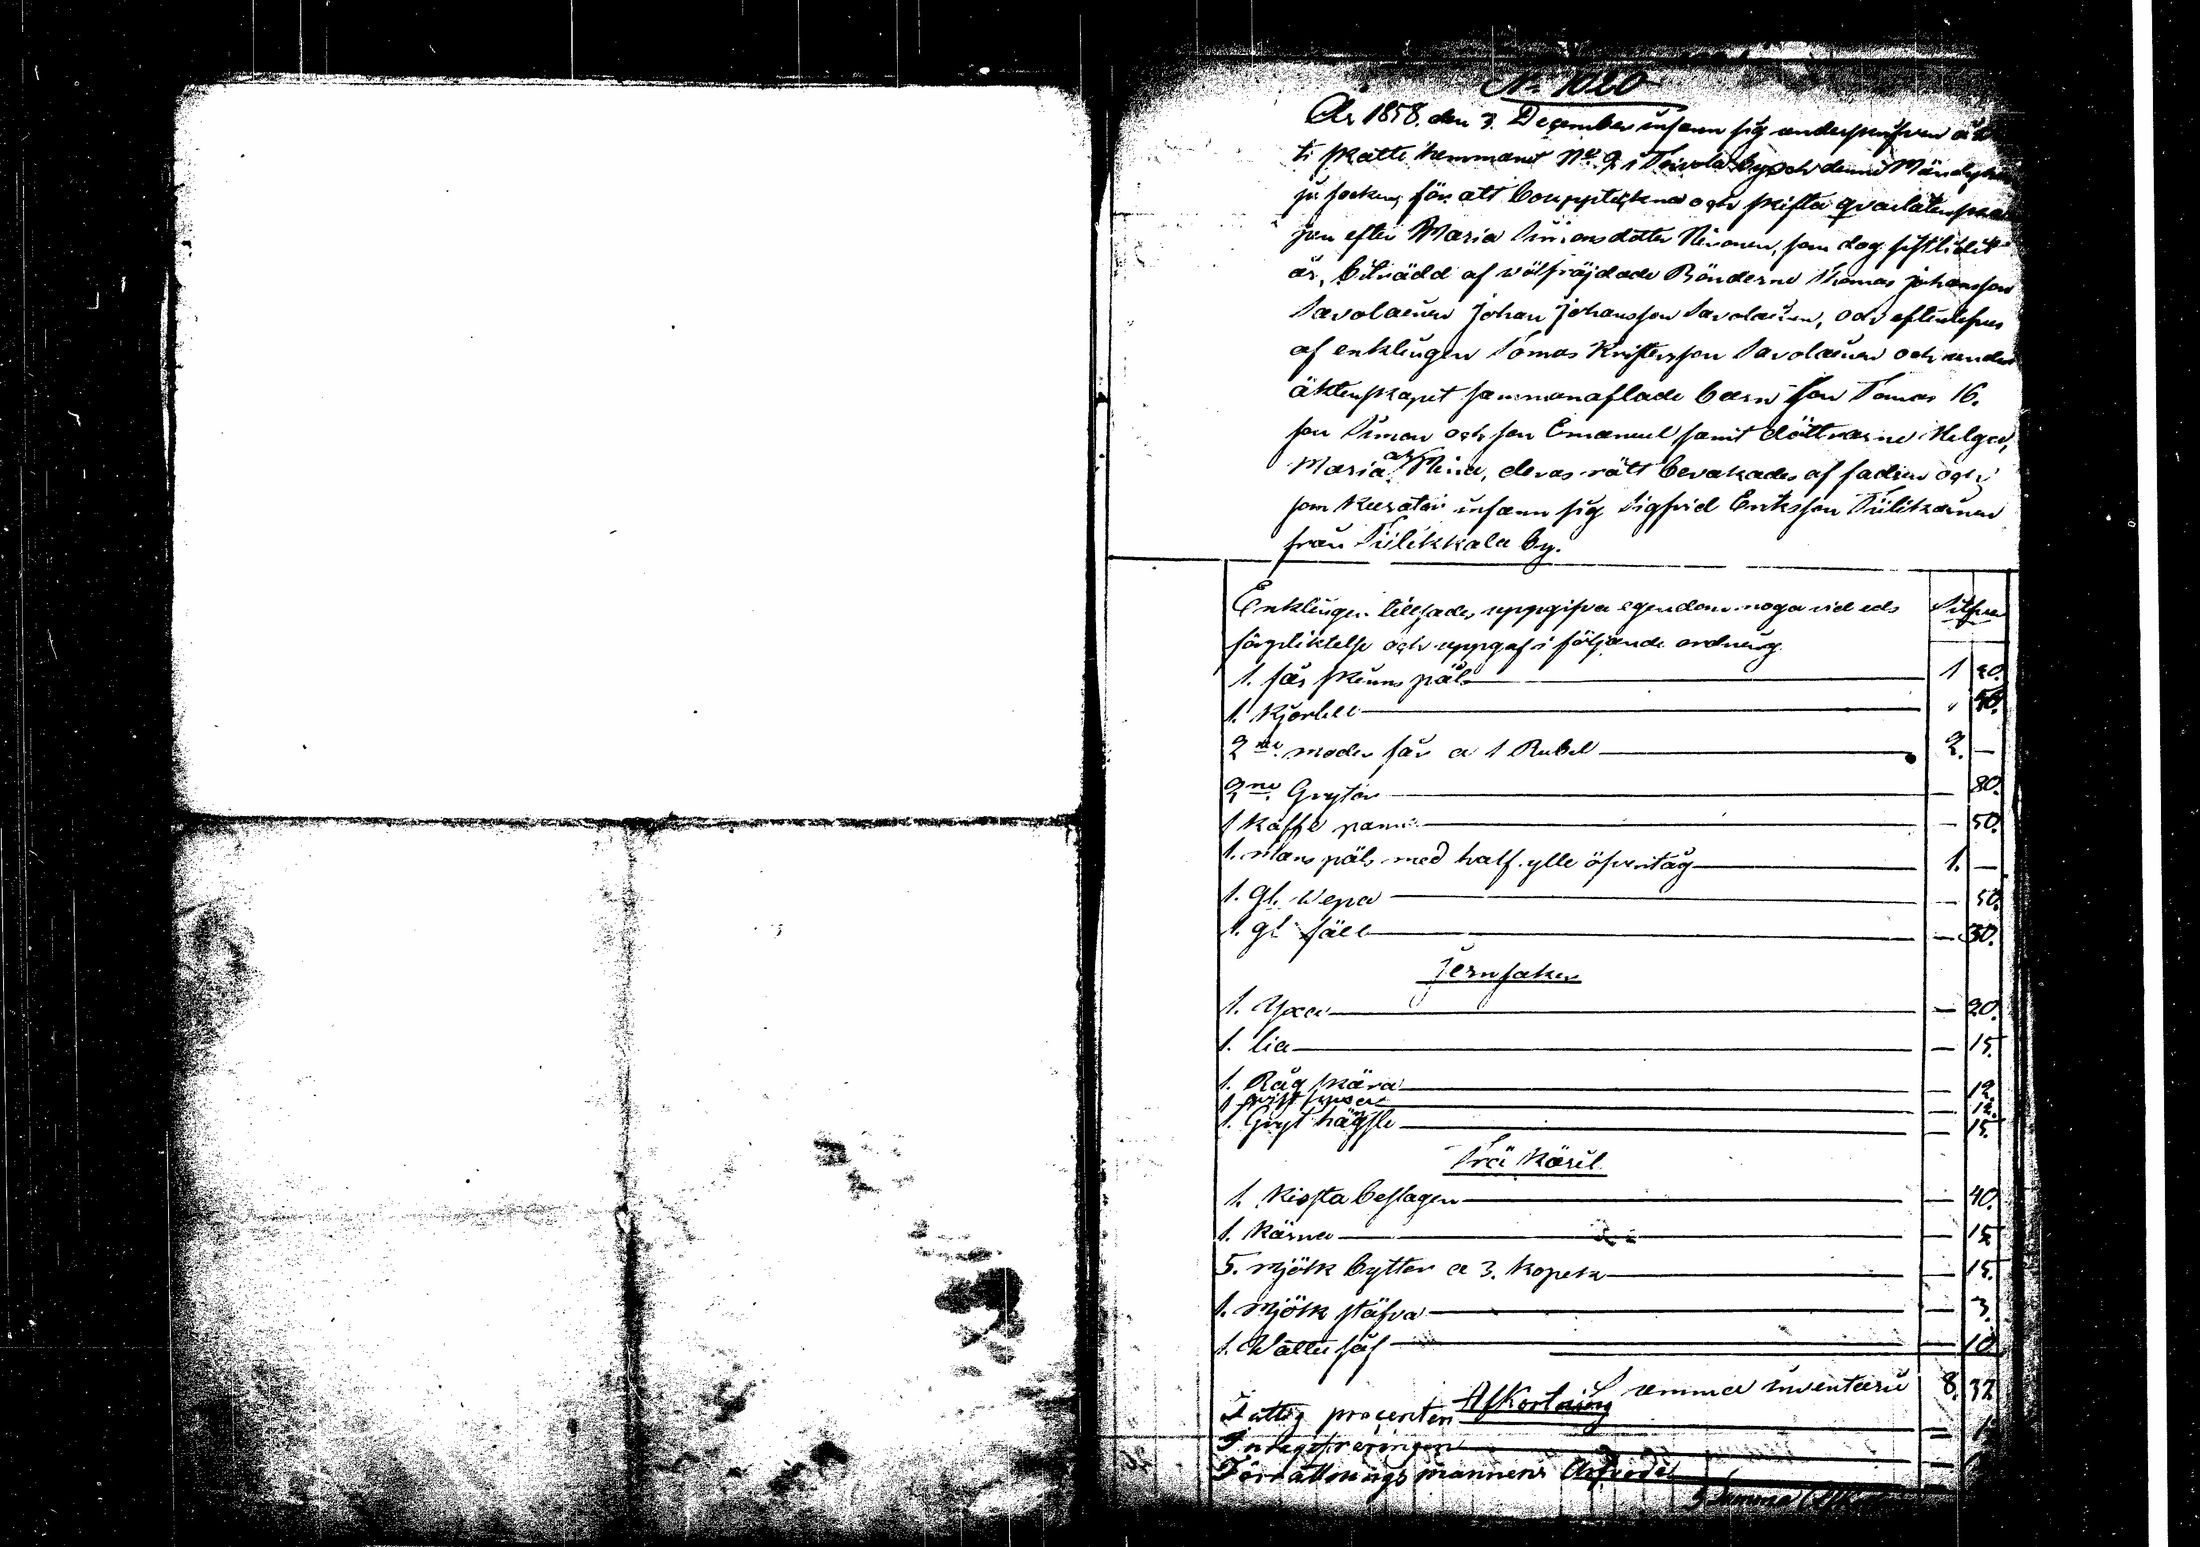 No 1020
År 1858. den 3. December infann sig underskrifven å
ti skatte hemmanet No 9 i Toivola by och denne Mäntyharju
ju socken, för att bouppteckna och skifta qvarlåtenska
pen efter Maria Simonsdotter Ninonen, som dog sistlidet
år, biträdd af välfräjdade Bönderne Thomas Johansson
Savolainen Johan Johansson Savolainen, och efterlefves
af enklingen Tomas Kristersson Savolainen och under
äktenskapet sammanaflade barn Son Tomas 16.
son Simon och son Emanuel samt döttrarne Helga,
Maria och Stina, deras rätt bevakades af fadren och
som Kurator infann sig Sigfrid Eriksson Tiilikainen
från Tiilikkala by.
Enklingen tillsades uppgifva egendom noga vid eds
förpliktelse och uppgaf i följande ordning
Silfver
1. får skinns päls 1 20.
1. Kjortell " 40.
2ne moder får a 1 Rubel 2. —
2ne Grytor — 80.
1 Kaffe panna — 50.
1. mans päls med half ylle öfvertåg 1. —
1. gl. wepa — 50.
1. gl fäll — 30.
Jernsaker
1. Yxa — 20.
1. lia — 15.
1. Råg skära — 12.
1. — 12.
1. Gryt hängsle — 15.
Trä Käril
1. Kissta beslagen — 40.
1. Kärna — 15.
5. mjölk byttor a 3. kopek — 15.
1. mjölk stäfva — 3.
1. Vattu så — 10
Summa inventarii 8. 37
Afkortning
Fattig procenten — 1
Förrättnings mannens Arfvode
Summa